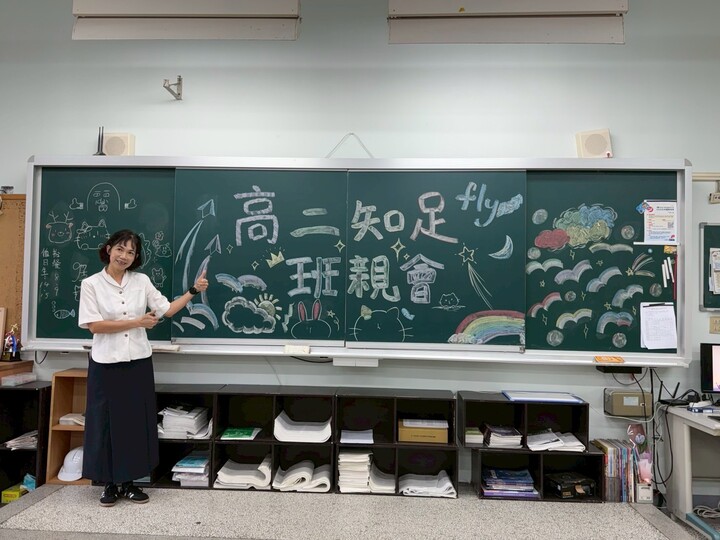 高二知足
fly
班親會